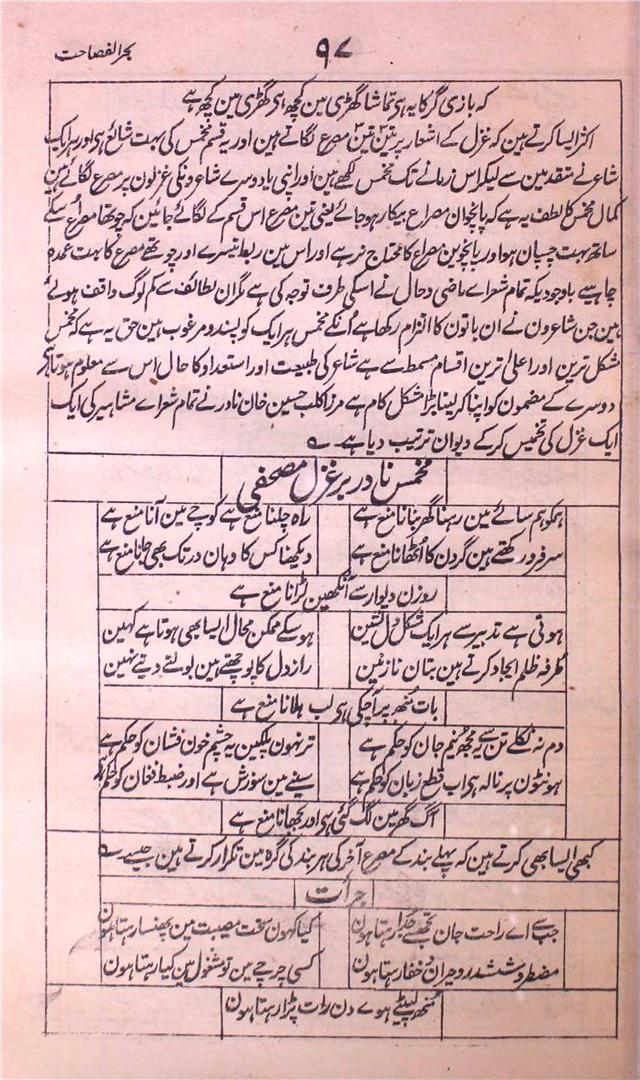 ۹۷
بحر الفصاحت
کہ بازی گر کا یہ ہی تماشا گھڑی مین کچھ ہی گھڑی مین کچھ ہے
اکثر ایسا کرتے ہین کہ غزل کے اشعار پر تین تین مصرع لگاتے ہین اور یہ قسم مخمس کی بہت شائع ہی اور ہر ایک
شاعر نے متقدمین سے لیکر اس زمانے تک مخمس لکھے ہین اور اپنی یا دوسرے شاعرونکی غزلون پر مصرع لگائے ہین
کمال مخمس کا لطف یہ ہے کہ پانچوان مصراع بیکار ہو جائے یعنی تین مصرع اس قسم کے لگائے جائین کہ چوتھا مصرع اُسکے
ساتھ بہت چسپان ہو اور پانچوین مصراع کا محتاج نرہے اور اس مین ربط تیسرے اور چوتھے مصرع کا بہت عمدہ
چاہیے باوجودیکہ تمام شعراے ماضی و حال نے اسکی طرف توجہ کی ہے مگر ان لطائف سے کم لوگ واقف ہوئے
ہین جن شاعرون نے ان باتون کا التزام رکھا ہے اُنکے مخمس ہر ایک کو پسند و مرغوب ہین حق یہ ہے کہ مخمس
مشکل ترین اور اعلیٰ ترین اقسام مسمط سے ہے شاعر کی طبیعت اور استعداد کا حال اس سے معلوم ہوتا ہی
دوسرے کے مضمون کو اپنا کر لینا بڑا مشکل کام ہے مرزا کلب حسین خان نادر نے تمام شعراے مشاہیر کی ایک
ایک غزل کی تخمیس کر کے دیوان ترتیب دیا ہے۔
مخمس نادر بر غزل مصحفی
ہمکو ہم سائے مین رہنا گھر بنانا منع ہے راہ چلنا منع ہے کوچے مین آنا منع ہے
سر فرو رکھتے ہین گردن کا اُٹھانا منع ہے دیکھنا کس کا وہان در تک بھی جانا منع ہے
روزن دیوار سے آنکھین لڑانا منع ہے
ہوتی ہے تدبیر سے ہر ایک شکل دل نشین ہو سکے ممکن محال ایسا بھی ہوتا ہے کہین
طرفہ ظلم ایجاد کرتے ہین بتان نازنین راز دل کا پوچھتے ہین بولنے دیتے نہین
بات مُنھ پر آچکی ہی لب ہلانا منع ہے
دم نہ نکلے تن سے مجھ نیم جان کو حکم ہے تر نہون پلکین یہ چشم خون فشان کو حکم ہے
ہونٹون پر نالہ ہی اب قطع زبان کو حکم ہے سینے مین سوزش ہے اور ضبط فغان کو حکم ہے
آگ گھر مین لگ گئی ہی اور بجھانا منع ہے
کبھی ایسا بھی کرتے ہین کہ پہلے بند کے مصرع آخر کی ہر بند کی گرہ مین تکرار کرتے ہین جیسے
جرات
جب سے اے راحت جان تجھسے جدا رہتا ہون کیا کہون سخت مصیبت مین پھنسا رہتا ہون
مضطر و ششدر و حیران و خفا رہتا ہون کسی چرچے مین نو مشغول مین کیا رہتا ہون
مُنھ لپیٹے ہوے دن رات پڑا رہتا ہون